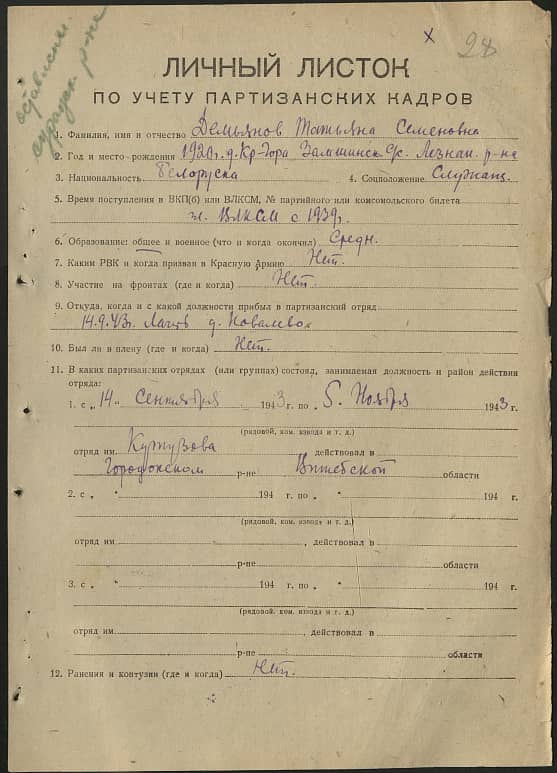 х 28
оставлен.
ЛИЧНЫЙ ЛИСТОК
ПО УЧЕТУ ПАРТИЗАНСКИХ КАДРОВ
1. Фамилия, имя и отчество Демьянов Татьяна Семеновна
2. Год и место рождения 1920 г. д. Кр-Гора с/с. Лезнан. р-на
3. Национальность Белоруска 4. Соцположение Служащ.
5. Время поступления в ВКП(б) или ВЛКСМ, № партийного или комсомольского билета
чл. ВЛКСМ с 1939 г.
6. Образование: общее и военное (что и когда окончил) Средн.
7. Каким РВК и когда призван в Красную Армию Нет.
8. Участие на фронтах (где и когда) Нет.
9. Откуда, когда и с какой должности прибыл в партизанский отряд
14.9.43 г. д. Ковалевок
10. Был ли в плену (где и когда) Нет.
11. В каких партизанских отрядах (или группах) состоял, занимаемая должность и район действия
отряда:
1. с „14" Сентября 1943 г. по „5. Ноября 1943 г.
(рядовой, ком. взвода и т. д.)
отряд им. Кутузова действовал в
Городокском р-не Витебской области
2. с „ " 194 г. по „ " 194 г.
(рядовой, ком. взвода и т. д.)
отряд им. , действовал в
р-не области
3. с „ " 194 г. по „ " 194 г.
(рядовой, ком. взвода и т. д.)
отряд им. , действовал в
р-не области
12. Ранения и контузии (где и когда) Нет.